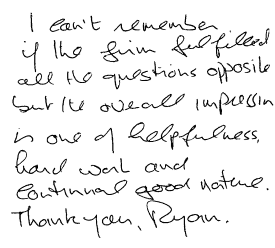 I can't remember
if the firm fulfilled
all the questions opposite
but the overall impression
is one of helpfulness,
hard work and
continual good nature.
Thank you, Ryan.